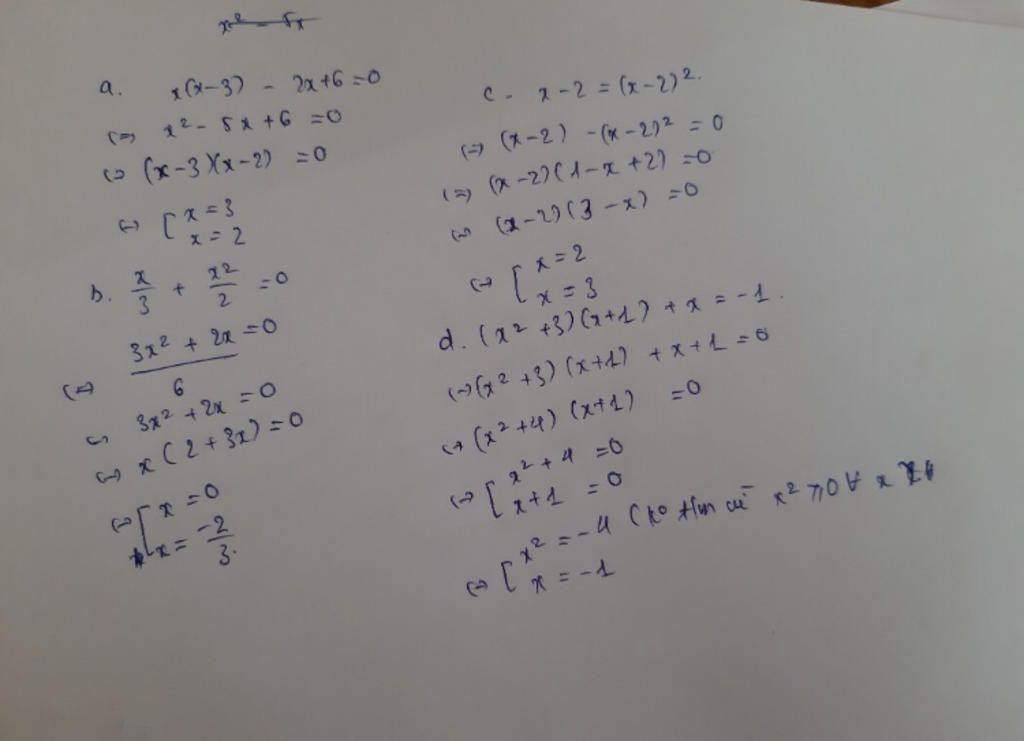 x² - 5x
a. x(x-3) - 2x+6=0
(=) x² - 5x+6 =0
(=) (x-3)(x-2) =0
(=) [ x=3
x=2
b. x/3 + x²/2 =0
(=) (3x² + 2x)/6 =0
(=) 3x² + 2x =0
(=) x(2+3x)=0
(=) [ x=0
x= -2/3.
c - x-2 = (x-2)².
(=) (x-2) -(x-2)² = 0
(=) (x-2)(1-x+2) =0
(=) (x-2)(3-x) =0
(=) [ x=2
x=3
d. (x²+3)(x+1) + x = -1.
(=) (x²+3)(x+1) + x+1 =0
(=) (x²+4) (x+1) =0
(=) [ x²+4 =0
x+1 =0
(=) [ x² = -4 (k° x² ≥ 0 ∀ x
x = -1